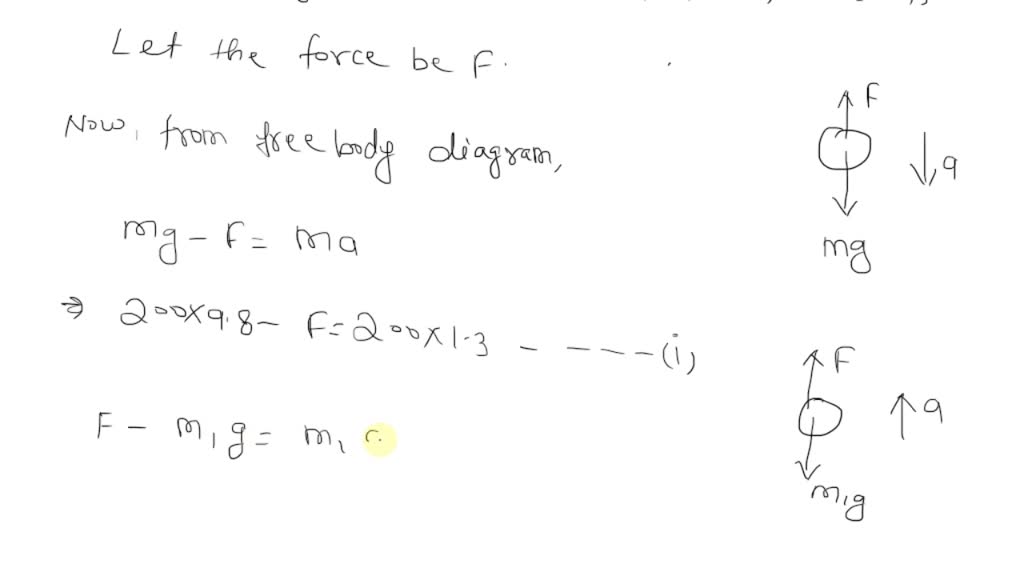 Let the force be F.
Now, from free body diagram,
mg - F = ma
⇒ 200×9.8 - F = 200×1.3 - - - - - (i)
F - m₁g = m₁
F
a
mg
F
a
m₁g